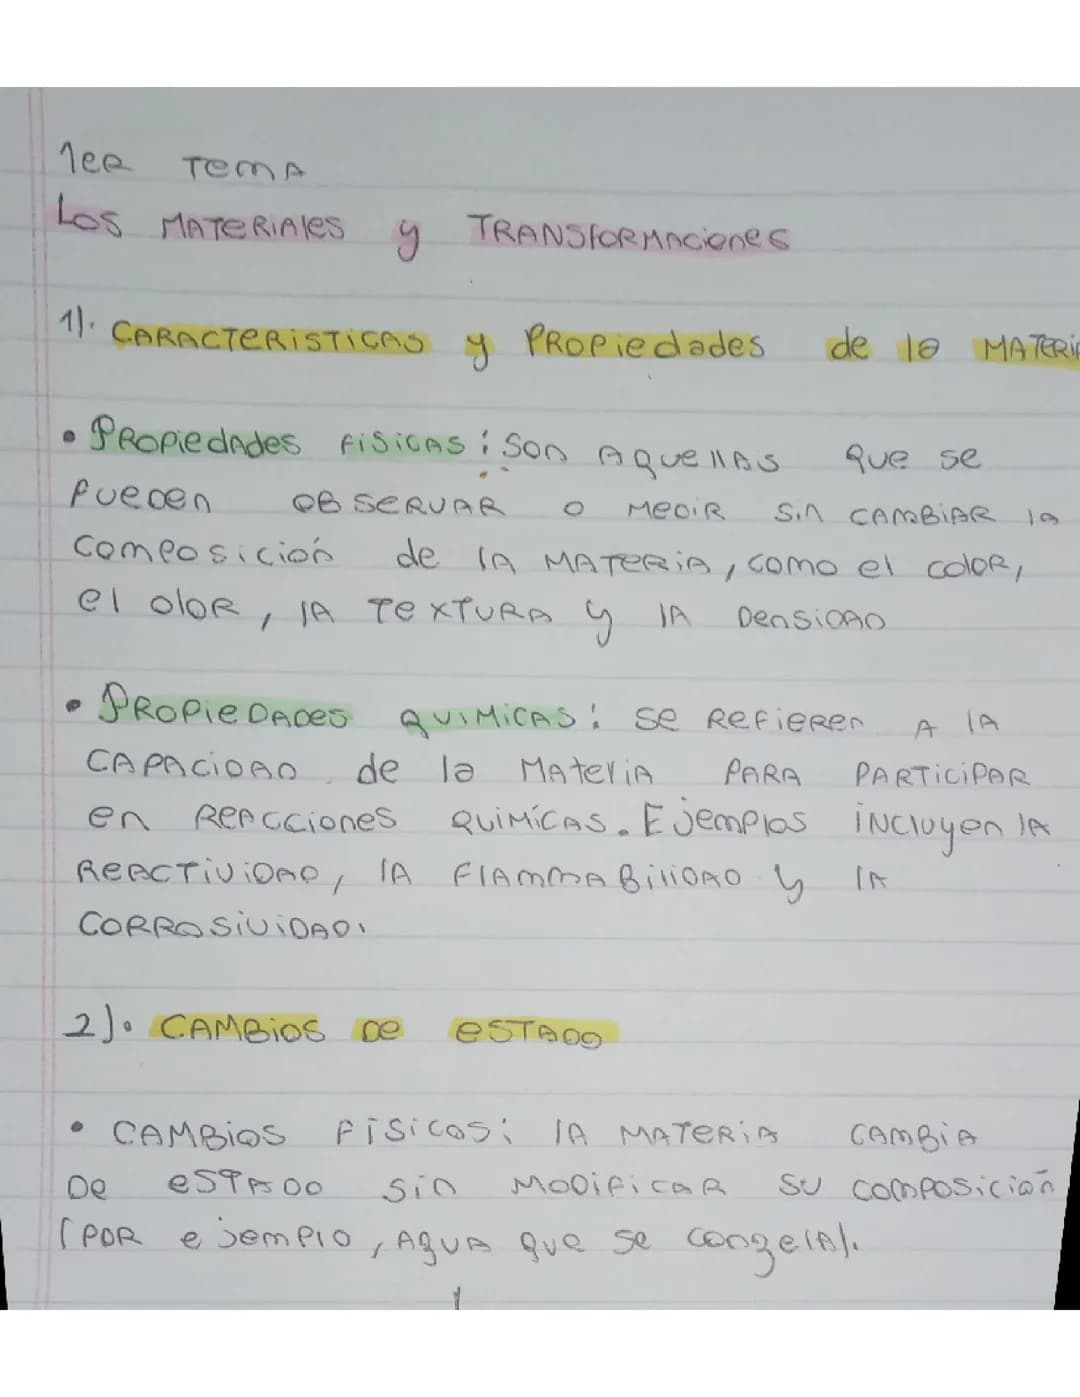 1er Tema
Los Materiales y Transformaciones
1). Caracteristicas y Propiedades de la Materia
• Propiedades fisicas: Son aquellas que se
pueden observar o medir sin cambiar la
composición de la materia, como el color,
el olor, la textura y la densidad
• Propiedades quimicas: se refieren a la
capacidad de la materia para participar
en reacciones químicas. Ejemplos incluyen la
reactividad, la flammabilidad y la
corrosividad.
2). Cambios de estado
• Cambios físicos: la materia cambia
de estado sin modificar su composición
(por ejemplo, agua que se congela).